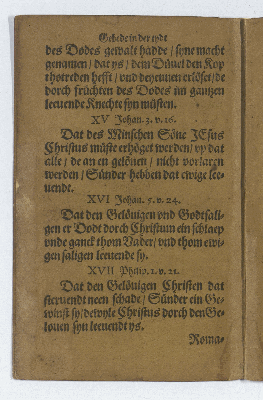 Gebede in der tydt
des Dodes gewalt hadde / syne macht
genamen / dat ys / dem Düuel den Kop
thotreden hefft / vnd deyennen erlöset / de
dorch früchten des Dodes im gantzen
leeuende Knechte syn müsten.
XV Johan. 3. v. 16.
Dat des Minschen Söne JEsus
Christus müste erhöget werden / vp dat
alle / de an en gelöuen / nicht vorlaren
werden / Sünder hebben dat ewige lee-
uendt.
XVI Johan. 5. v. 24.
Dat den Gelöuigen vnd Godtsali-
gen er Dodt dorch Christum ein schlaep
vnde ganck thom Vader / vnd thom ewi-
gen saligen leeuende sy.
XVII Philip. 1. v. 21.
Dat den Gelöuigen Christen dat
steruendt neen schade / Sünder ein Ge-
winst sy / dewyle Christus dorch den Ge-
louen syn leeuendt ys.
Roma-